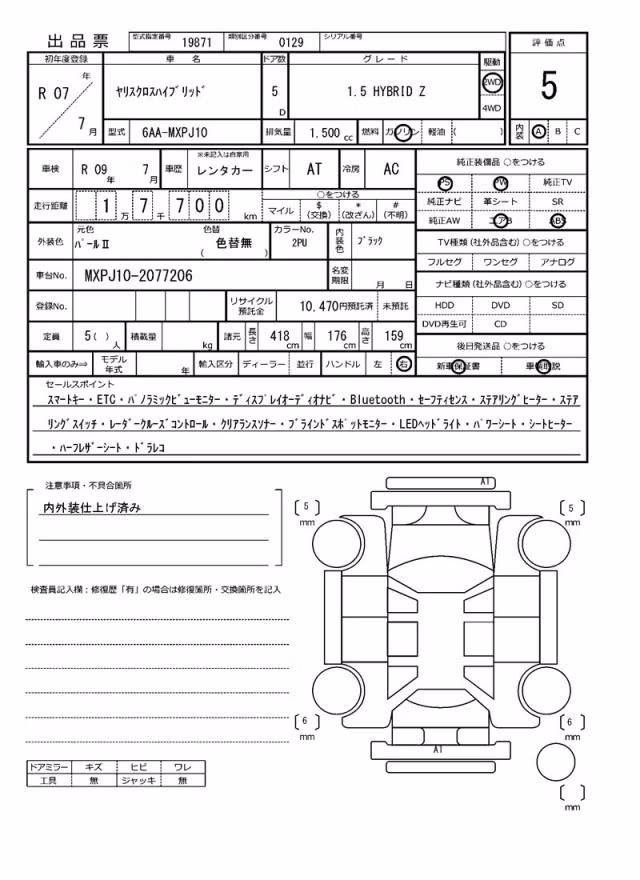 出品票 型式指定番号 19871 類別区分番号 0129 シリアル番号
初年度登録 車名 ドア数 グレード 駆動 評価点
R 07 年 7 月 ヤリスクロスハイブリッド 5 D 1.5 HYBRID Z 2WD 4WD 5
型式 6AA-MXPJ10 排気量 1.500 cc 燃料 ガソリン 軽油 ( ) 内装 A B C
車検 R 09 年 7 月 車歴 ※未記入は自家用 レンタカー シフト AT 冷房 AC
走行距離 1 万 7 千 7 0 0 km ○をつける マイル $ (交換) * (改ざん) # (不明)
外装色 元色 パールⅡ 色替 ( 色替無 ) カラーNo. 2PU 内装色 ブラック
車台No. MXPJ10-2077206 名変期限 月 日
登録No. リサイクル預託金 10.470円預託済 未預託
定員 5( ) 人 積載量 kg 諸元 長さ 418 cm 幅 176 cm 高さ 159 cm
輸入車のみ⇒ モデル年式 年 輸入区分 ディーラー 並行 ハンドル 左 右
純正装備品 ○をつける
PS PW 純正TV
純正ナビ 革シート SR
純正AW エアB ABS
TV種類(社外品含む) ○をつける
フルセグ ワンセグ アナログ
ナビ種類(社外品含む) ○をつける
HDD DVD SD
DVD再生可 CD
後日発送品 ○をつける
新車保証書 車輌取説
セールスポイント
スマートキー・ETC・パノラミックビューモニター・ディスプレイオーディオナビ・Bluetooth・セーフティセンス・ステアリングヒーター・ステア
リングスイッチ・レーダークルーズコントロール・クリアランスソナー・ブラインドスポットモニター・LEDヘッドライト・パワーシート・シートヒーター
・ハーフレザーシート・ドラレコ
注意事項・不具合箇所
内外装仕上げ済み
検査員記入欄:修復歴「有」の場合は修復箇所・交換箇所を記入
A1
[ 5 ] mm [ 5 ] mm
[ 6 ] mm [ 6 ] mm
A1
[ ] mm
ドアミラー キズ ヒビ ワレ
工具 無 ジャッキ 無